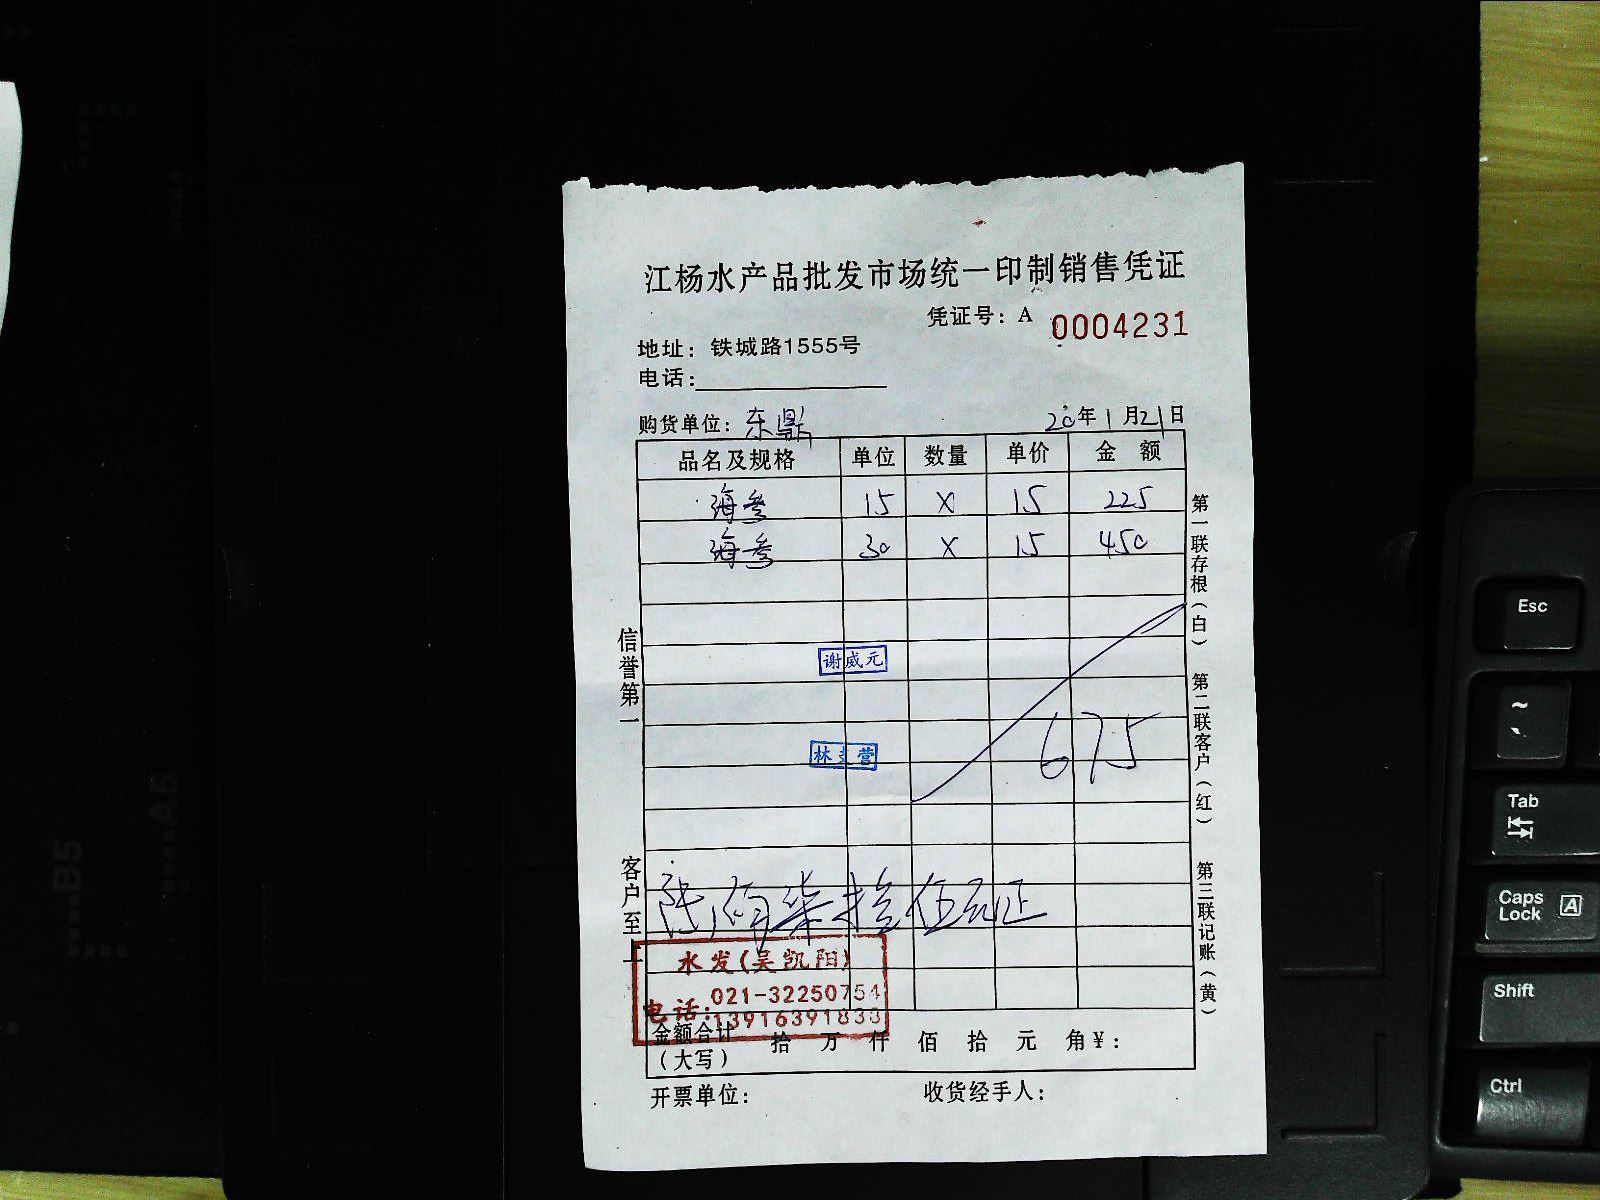 江杨水产品批发市场统一印制销售凭证
凭证号：A 0004231
地址：铁城路1555号
电话：
购货单位：东鼎 20年1月21日
品名及规格 单位 数量 单价 金 额
海参 15 X 15 225
海参 30 X 15 450
谢威元
675
林 营
陆佰柒拾伍元正
水发(吴凯阳)
电话：021-32250754
13916391838
金额合计（大写） 拾 万 仟 佰 拾 元 角￥：
开票单位： 收货经手人：
信誉第一
客户至上
第一联存根（白）
第二联客户（红）
第三联记账（黄）
Esc
~
Tab
Caps Lock A
Shift
Ctrl
B5
A5